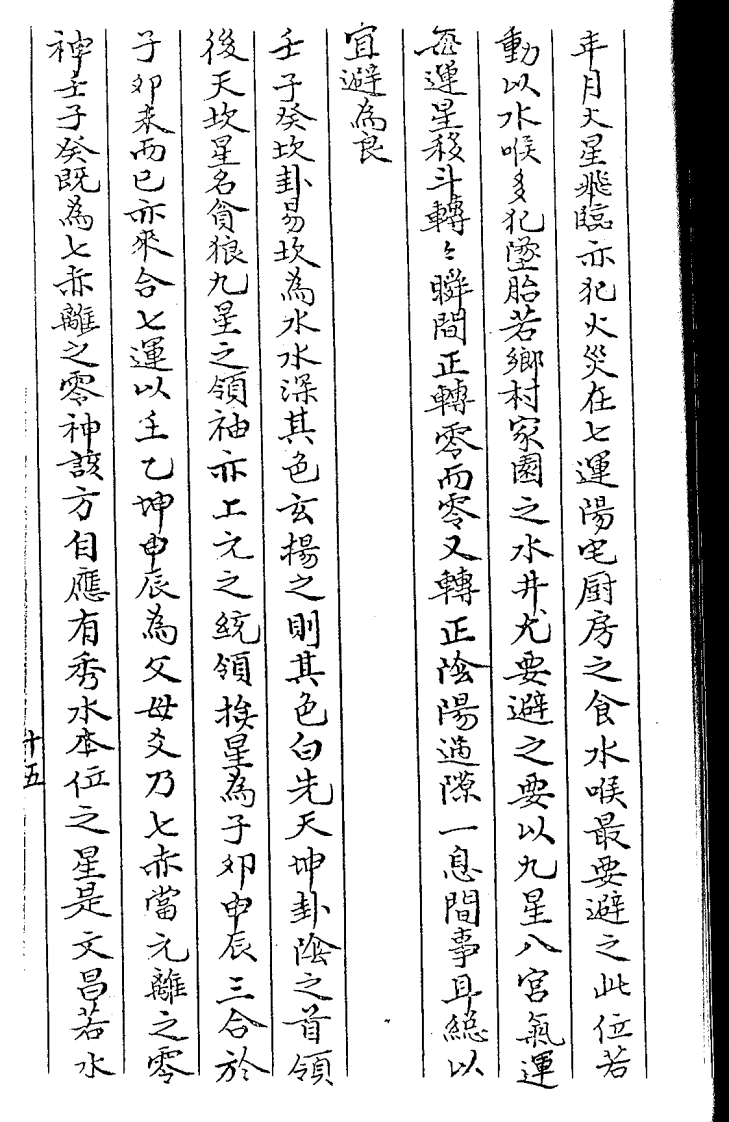 年月大星飛臨亦犯火災在七運陽宅厨房之食水喉最要避之此位若
動以水喉多犯墜胎若鄉村家園之水井尤要避之要以九星八宮氣運
每運星移斗轉〻瞬間正轉零而零又轉正陰陽過隙一息間事耳總以
宜避為良
壬子癸坎卦易坎為水水深其色玄揚之則其色白先天坤卦陰之首領
後天坎星名貪狼九星之領袖亦上元之統領挨星為子卯申辰三合於
子卯未而已亦來合七運以壬乙坤申辰為父母爻乃七赤當元離之零
神壬子癸既為七赤離之零神該方自應有秀水本位之星是文昌若水
十五